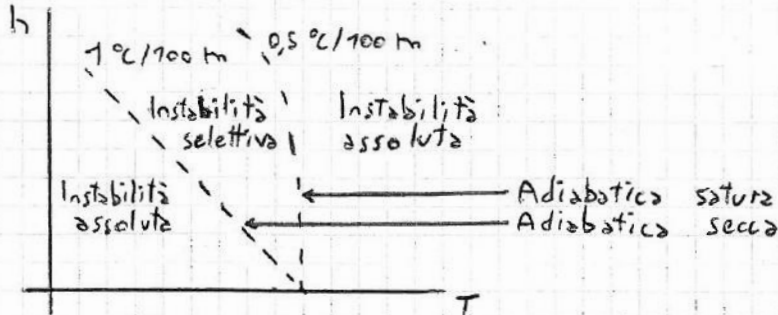 h
1 °C/100 m
0,5 °C/100 m
Instabilità
selettiva
Instabilità
assoluta
Instabilità
assoluta
Adiabatica satura
Adiabatica secca
T